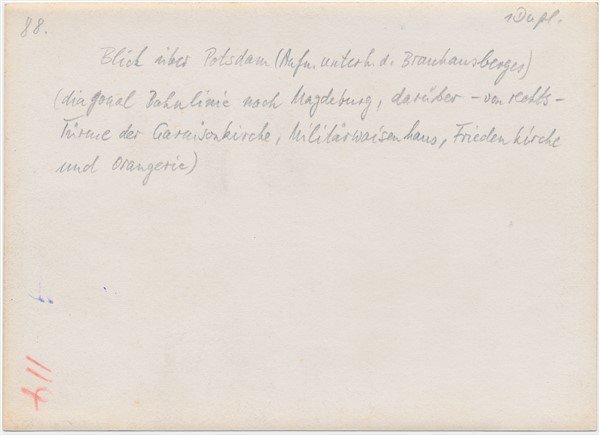 88.
1 Dupl.
Blick über Potsdam (Aufn. unterh. d. Brauhausberges)
(diagonal Bahnlinie nach Magdeburg, darüber - von rechts -
Türme der Garnisonkirche, Militärwaisenhaus, Friedenskirche
und Orangerie)
114